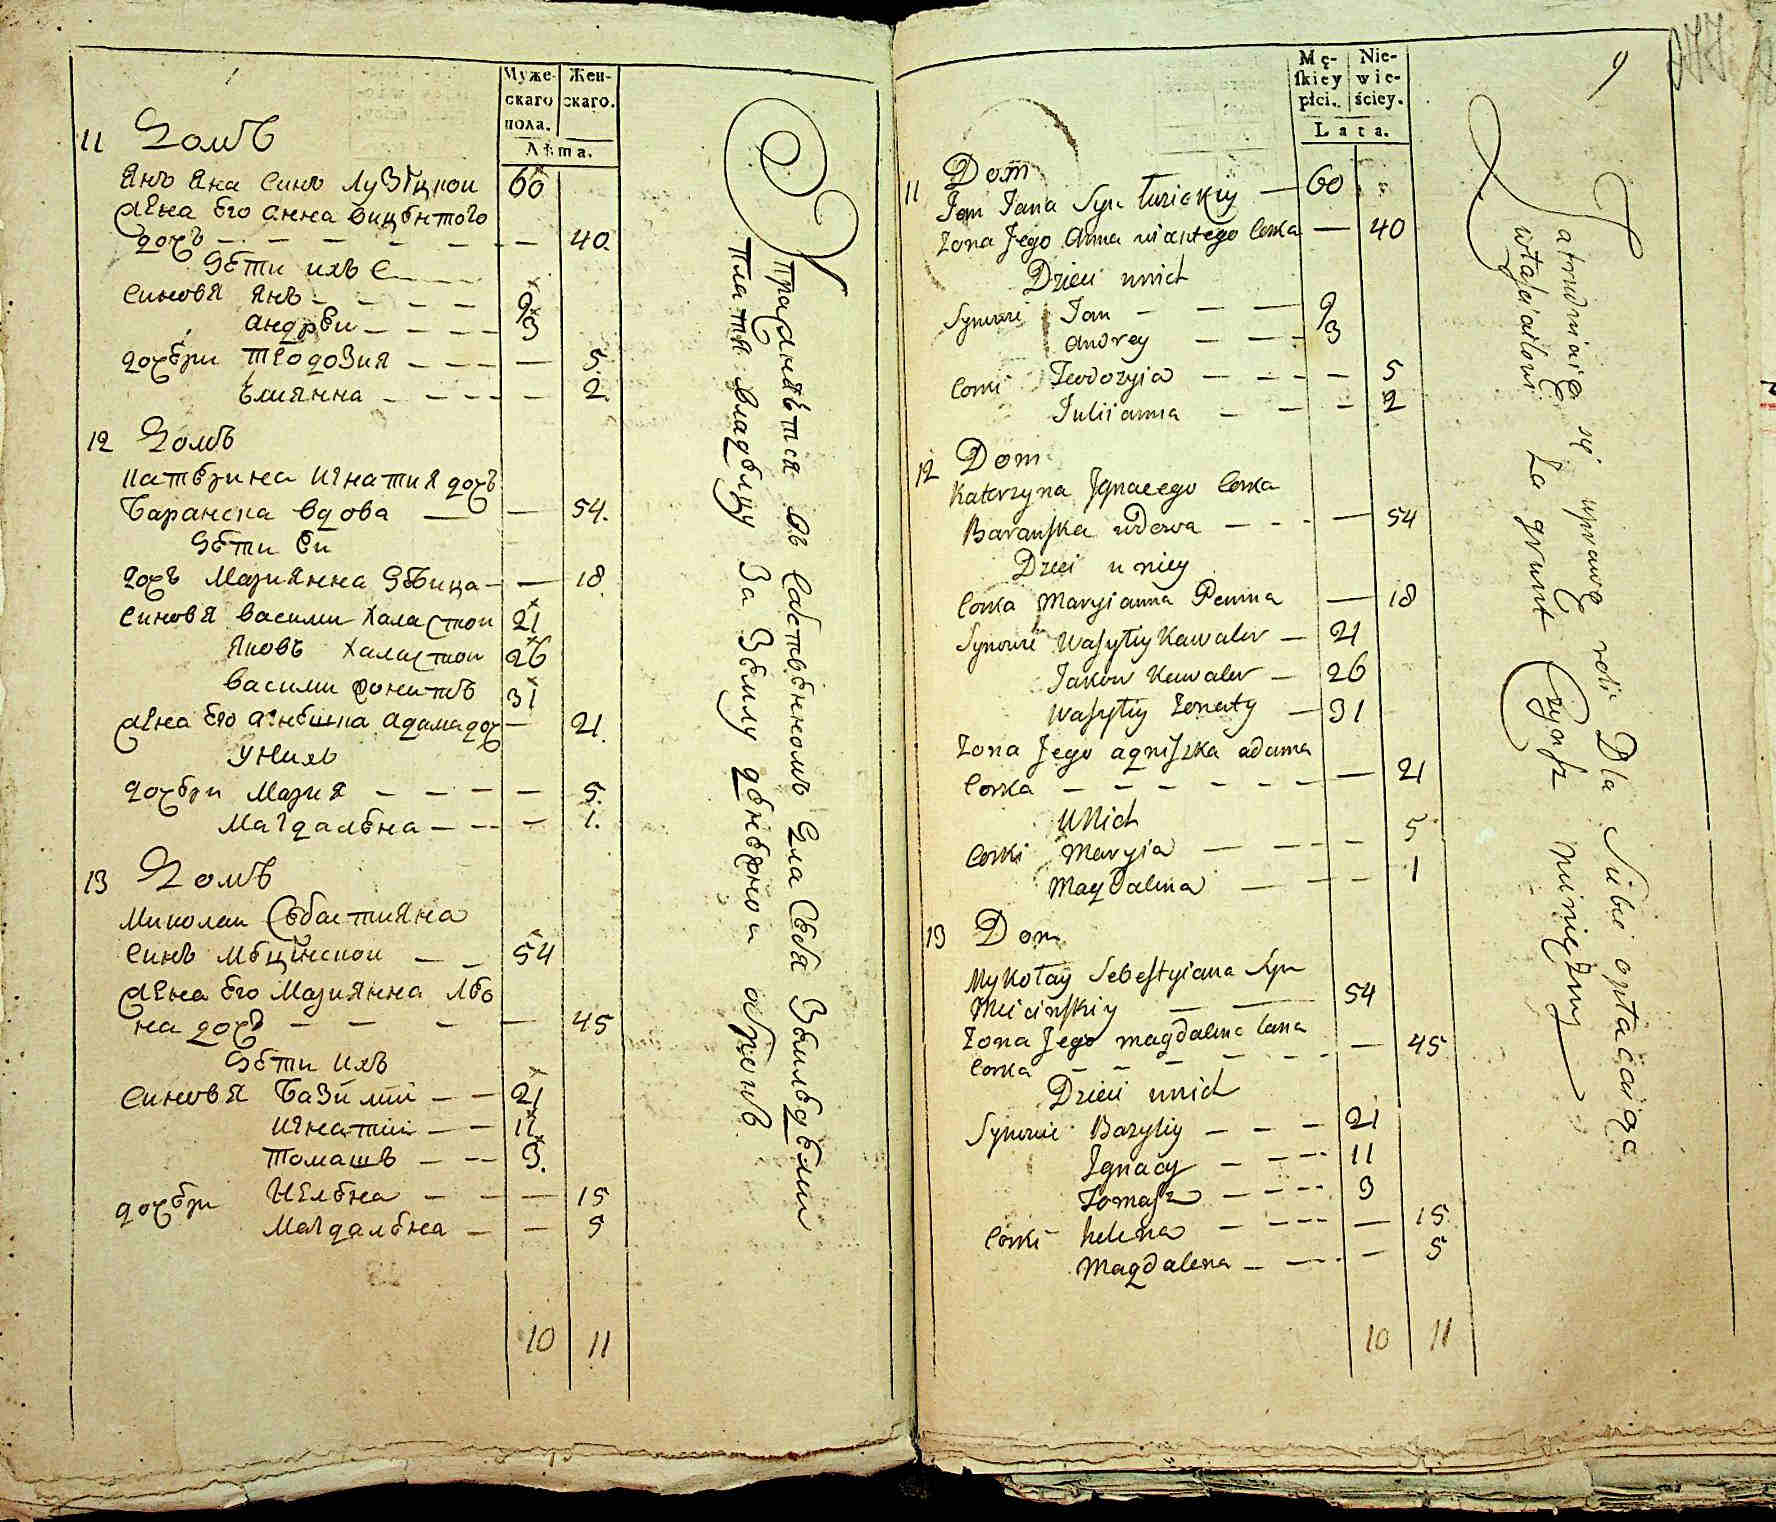 Муже-
скаго
пола.
Жен-
скаго.
Лѣта.
11 Домъ
Янъ Яна Синъ Лузѣцкои 60
жена его анна вицентого
дохъ — 40.
Дети ихъ
Синовя Янъ — 9
андреи — 3
дохери теодозия — 5.
Елиянна — 2.
12 Домъ
катерина игнатия дохъ
Баранска вдова — 54.
Дети еи
дохъ Мариянна Дѣвица — 18
Синовя василии Халастои 21
Яковъ Халастои 26
василии жонатъ 31
жена его агнешка адама дох — 21.
у нихъ
дохери Мария — 5.
Магдалена — 1.
13 Домъ
Миколаи Себастияна
Синъ Мецинскои — 54
жена его Мариянна Лео
на дохъ — 45
Дети ихъ
Синовя Базилии — 21
игнатии — 11
томашъ — 3.
дохери Helена — 15
Магдалена — 5
10 11
платя владелцу За Землу денежнои оброкъ
въ Собственномъ Для Себя
9
Mę-
skiey
płci.
Nie-
wie-
ściey.
Lata.
11 Dom
Jan Jana Syn Łuzickiy — 60
Zona Jego Anna wicentego Corka — 40
Dzieci unich
Synowie Jan — 9
Andrey — 3
Corki Teodozyia — 5
Juliianna — 2
12 Dom
Katarzyna Jgnacego Corka
Baranska wdowa — 54
Dzieci u niey
Corka Maryianna Panna — 18
Synowie Wasyliy Kawaler — 21
Jakow Kawaler — 26
Wasyliy Zonaty — 31
Zona Jego agniszka adama
Corka — 21
Unich
Corki Maryia — 5
Magdalena — 1
13 Dom
Mykołay Sebestyiana Syn
Miecinskiy — 54
Zona Jego magdalena
Corka — 45
Dzieci unich
Synowie Bazyliy — 21
Jgnacy — 11
Tomasz — 3
Corki helena — 15
Magdalena — 5
10 11
Zatrudniaią się uprawą roli Dla Siebie opłacaiąc
własciciełowi Za grunt Czynsz pieniężny